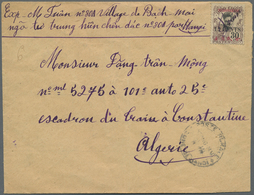 Exp. M. Tuân nº 30A Village de Bạch-mai
ngõ tư trung hiên chín dúc nº 30A par Hanoi
Monsieur Đặng-trân-Mông
nº mle 5275 à 101e auto 2 B
escadron du train à Constantine
Algerie